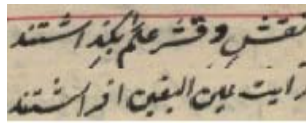 نقش و قشر علم بگذاشتند
رایت عین الیقین افراشتند